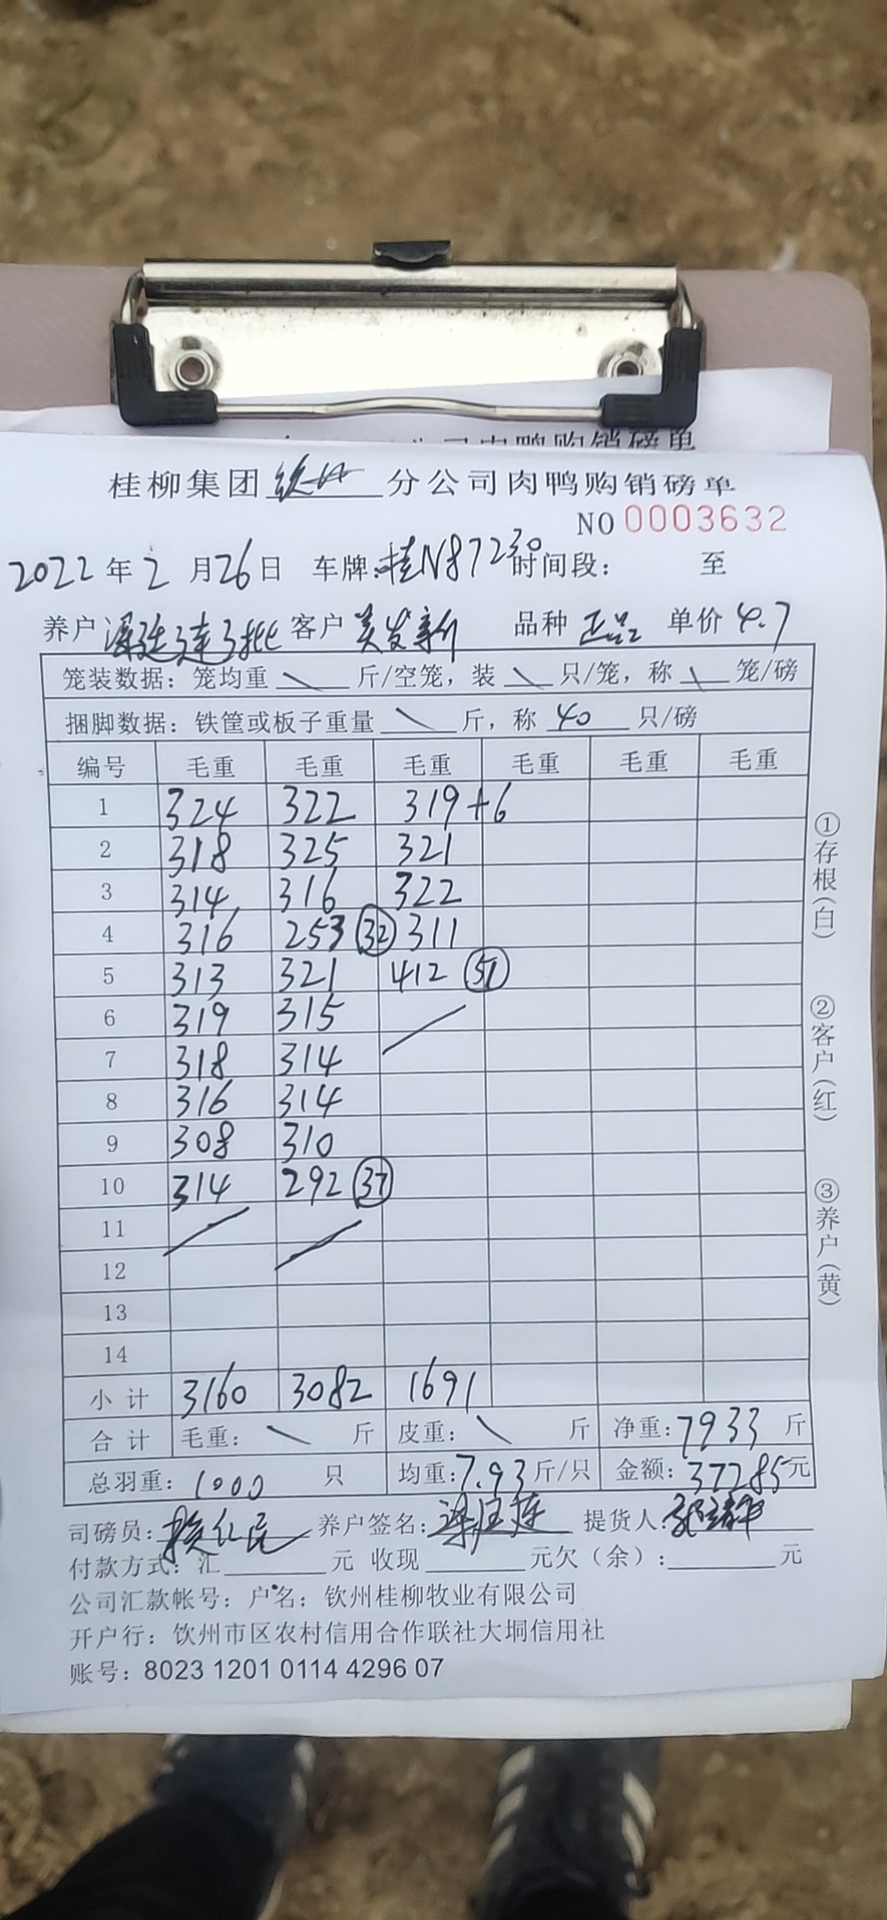 桂柳集团 分公司肉鸭购销磅单
NO 0003632
2022年2月26日 车牌:桂N87230 时间段: 至
养户 客户 品种 正品 单价 4.7
笼装数据: 笼均重 \ 斤/空笼, 装 \ 只/笼, 称 \ 笼/磅
捆脚数据: 铁筐或板子重量 \ 斤, 称 40 只/磅
编号 毛重 毛重 毛重 毛重 毛重 毛重
1 324 322 319+6
2 318 325 321
3 314 316 322
4 316 253 (32) 311
5 313 321 412 (51)
6 319 315
7 318 314
8 316 314
9 308 310
10 314 292 (37)
11
12
13
14
小计 3160 3082 1691
合计 毛重: \ 斤 皮重: \ 斤 净重: 7933 斤
总羽重: 1000 只 均重: 7.93 斤/只 金额: 37285 元
司磅员: 养户签名: 提货人:
付款方式: 汇 元 收现 元欠(余): 元
公司汇款帐号: 户名: 钦州桂柳牧业有限公司
开户行: 钦州市区农村信用合作联社大垌信用社
账号: 8023 1201 0114 4296 07
①存根(白)
②客户(红)
③养户(黄)